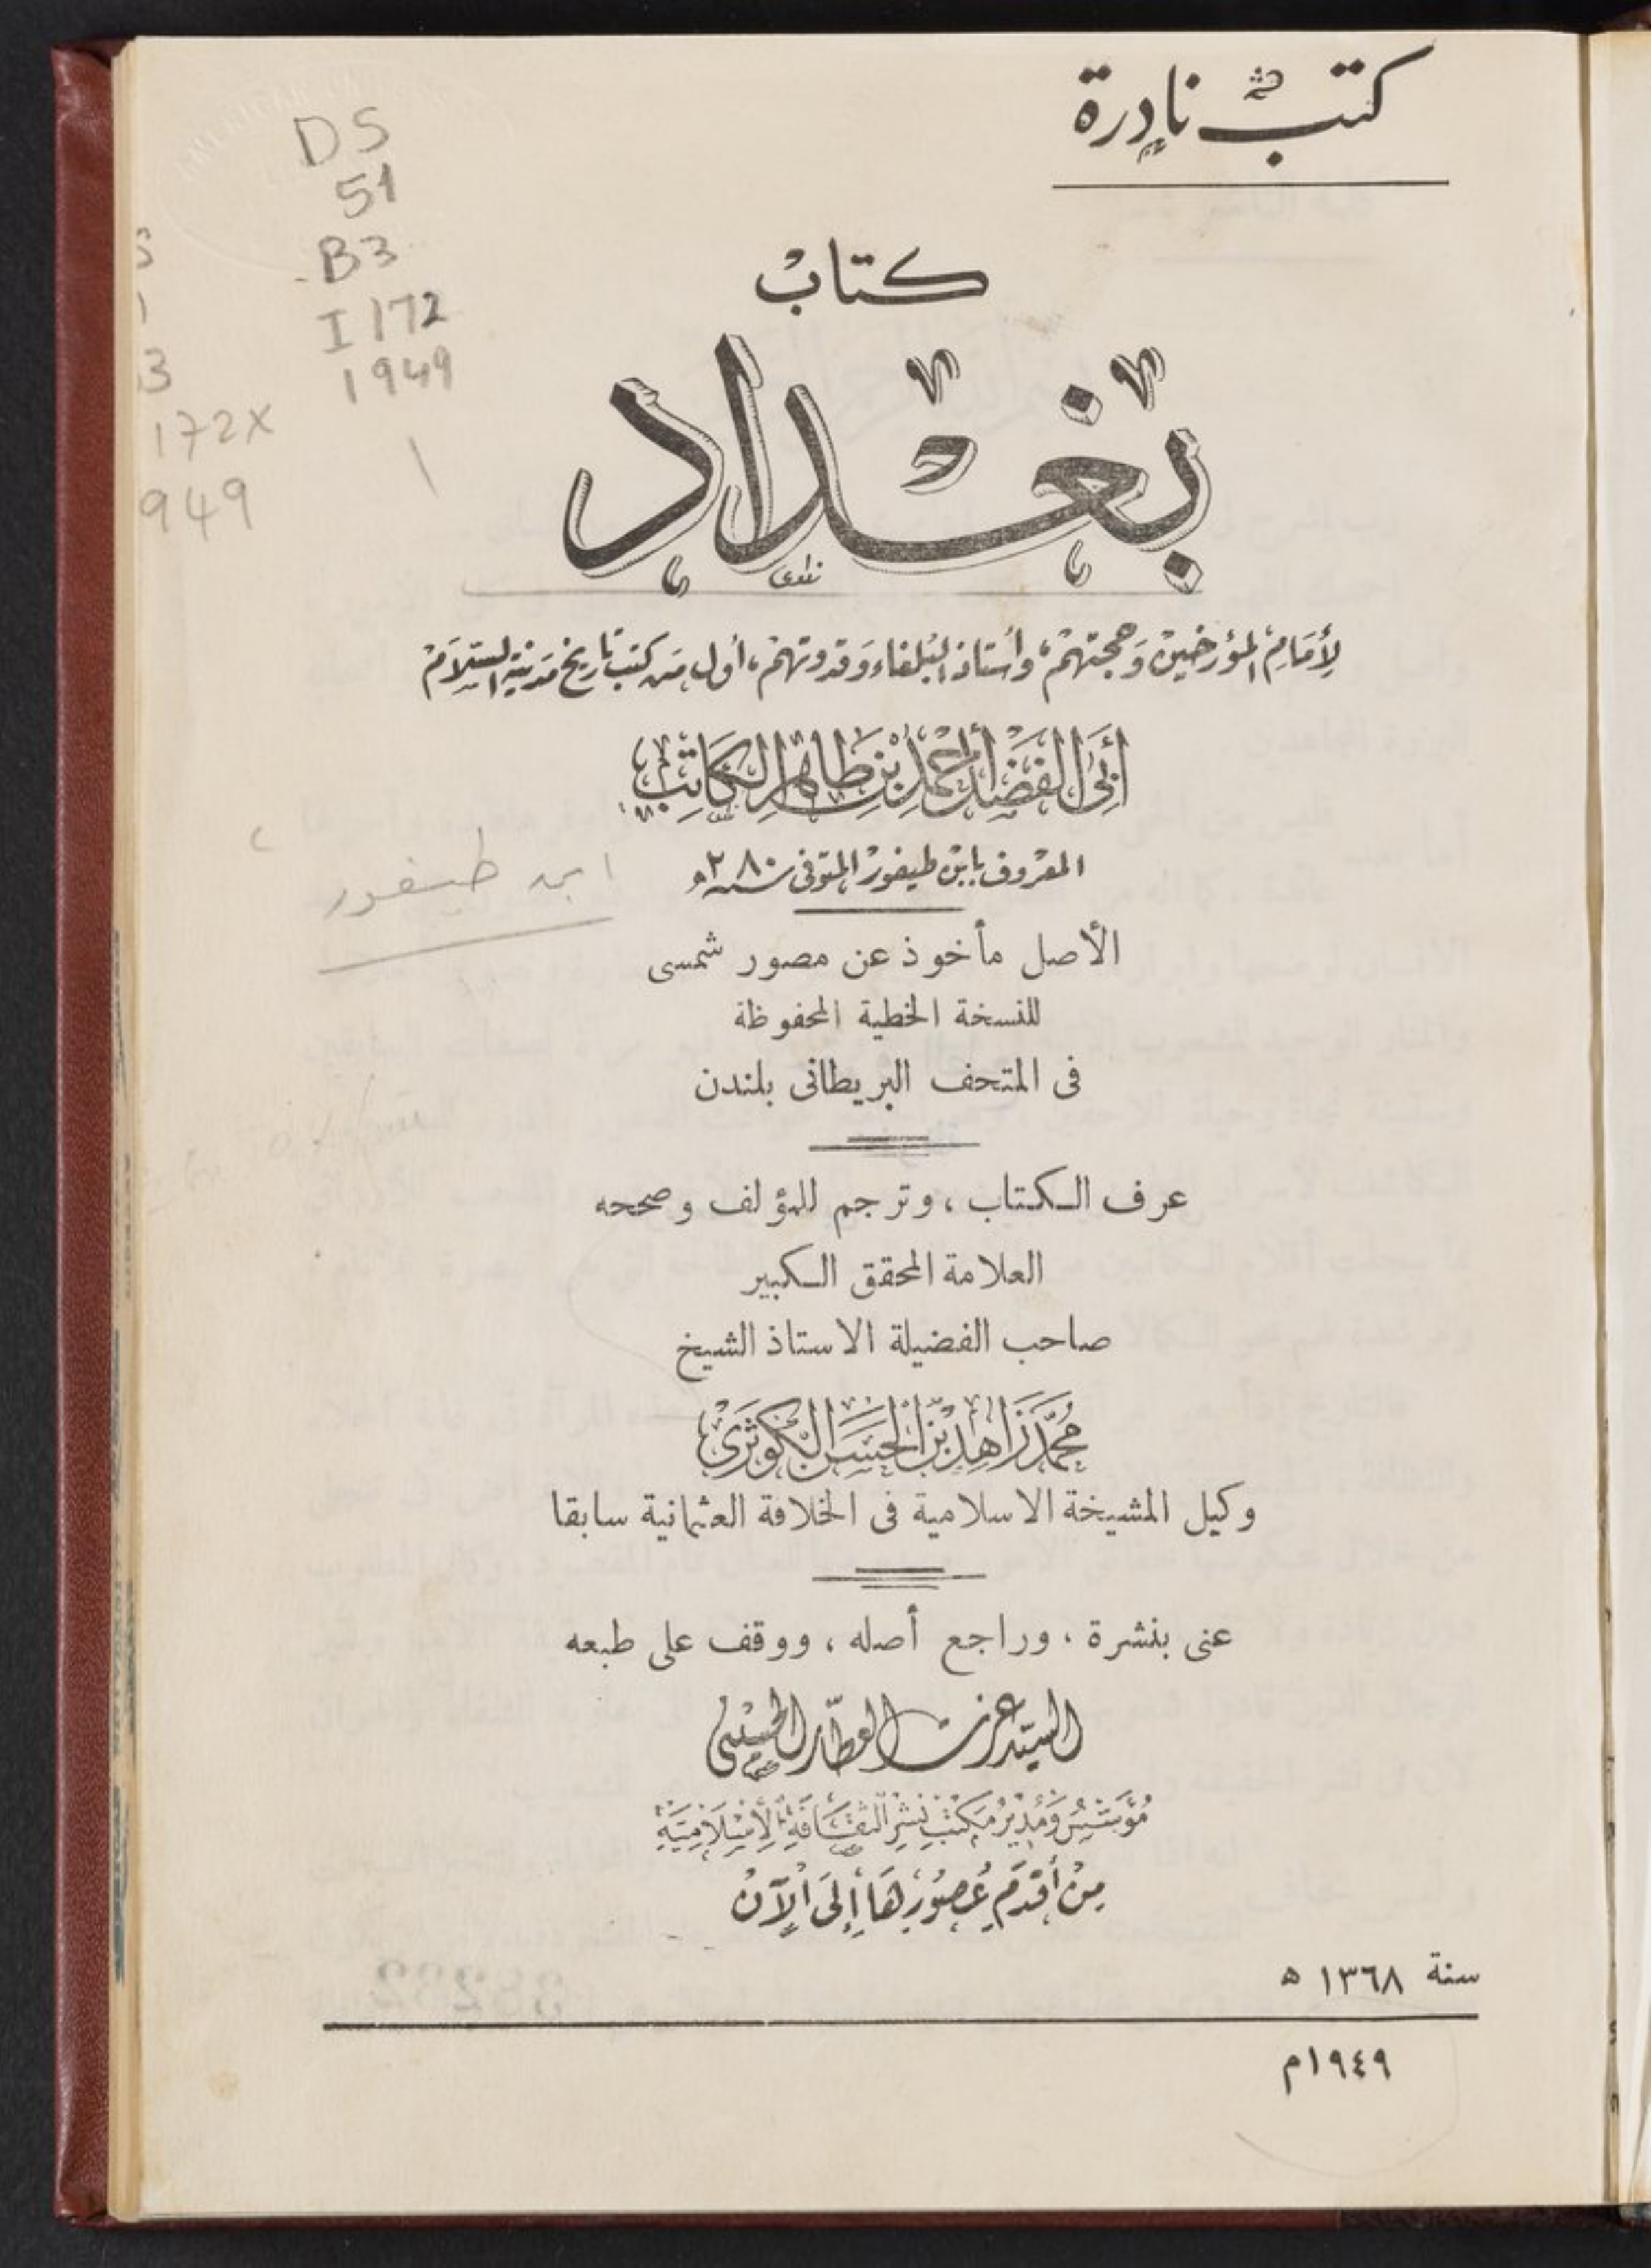 كتب نادرة
DS
51
B3
I 172
1949
3
172X
949
كتاب
بغداد
لإمام المؤرخين وحجتهم، وأستاذ البلغاء وقدوتهم، أول من كتب تاريخ مدينة السلام
أبي الفضل أحمد بن طاهر الكاتب
المعروف بابن طيفور المتوفى سنة ٢٨٠ ه
ابن طيفور
الأصل مأخوذ عن مصور شمسى
للنسخة الخطية المحفوظة
فى المتحف البريطانى بلندن
عرف الكتاب، وترجم للمؤلف وصححه
العلامة المحقق الكبير
صاحب الفضيلة الاستاذ الشيخ
محمد زاهد بن الحسن الكوثري
وكيل المشيخة الاسلامية فى الخلافة العثمانية سابقا
عنى بنشرة، وراجع أصله، ووقف على طبعه
السيد عزت العطار الحسيني
مؤسس ومدير مكتب نشر الثقافة الإسلامية
من أقدم عصورها إلى الآن
سنة ١٣٦٨ ه
١٩٤٩م